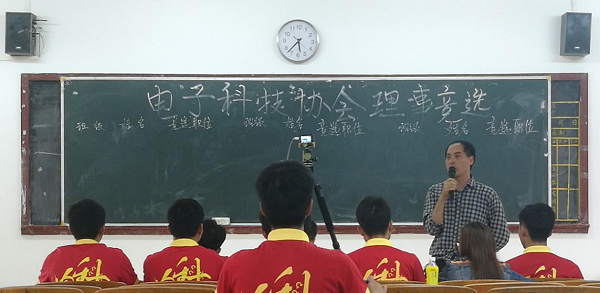 电子科技协会理事竞选
班级 姓名 竞选职位 班级 姓名 竞选职位 班级 姓名 竞选职位